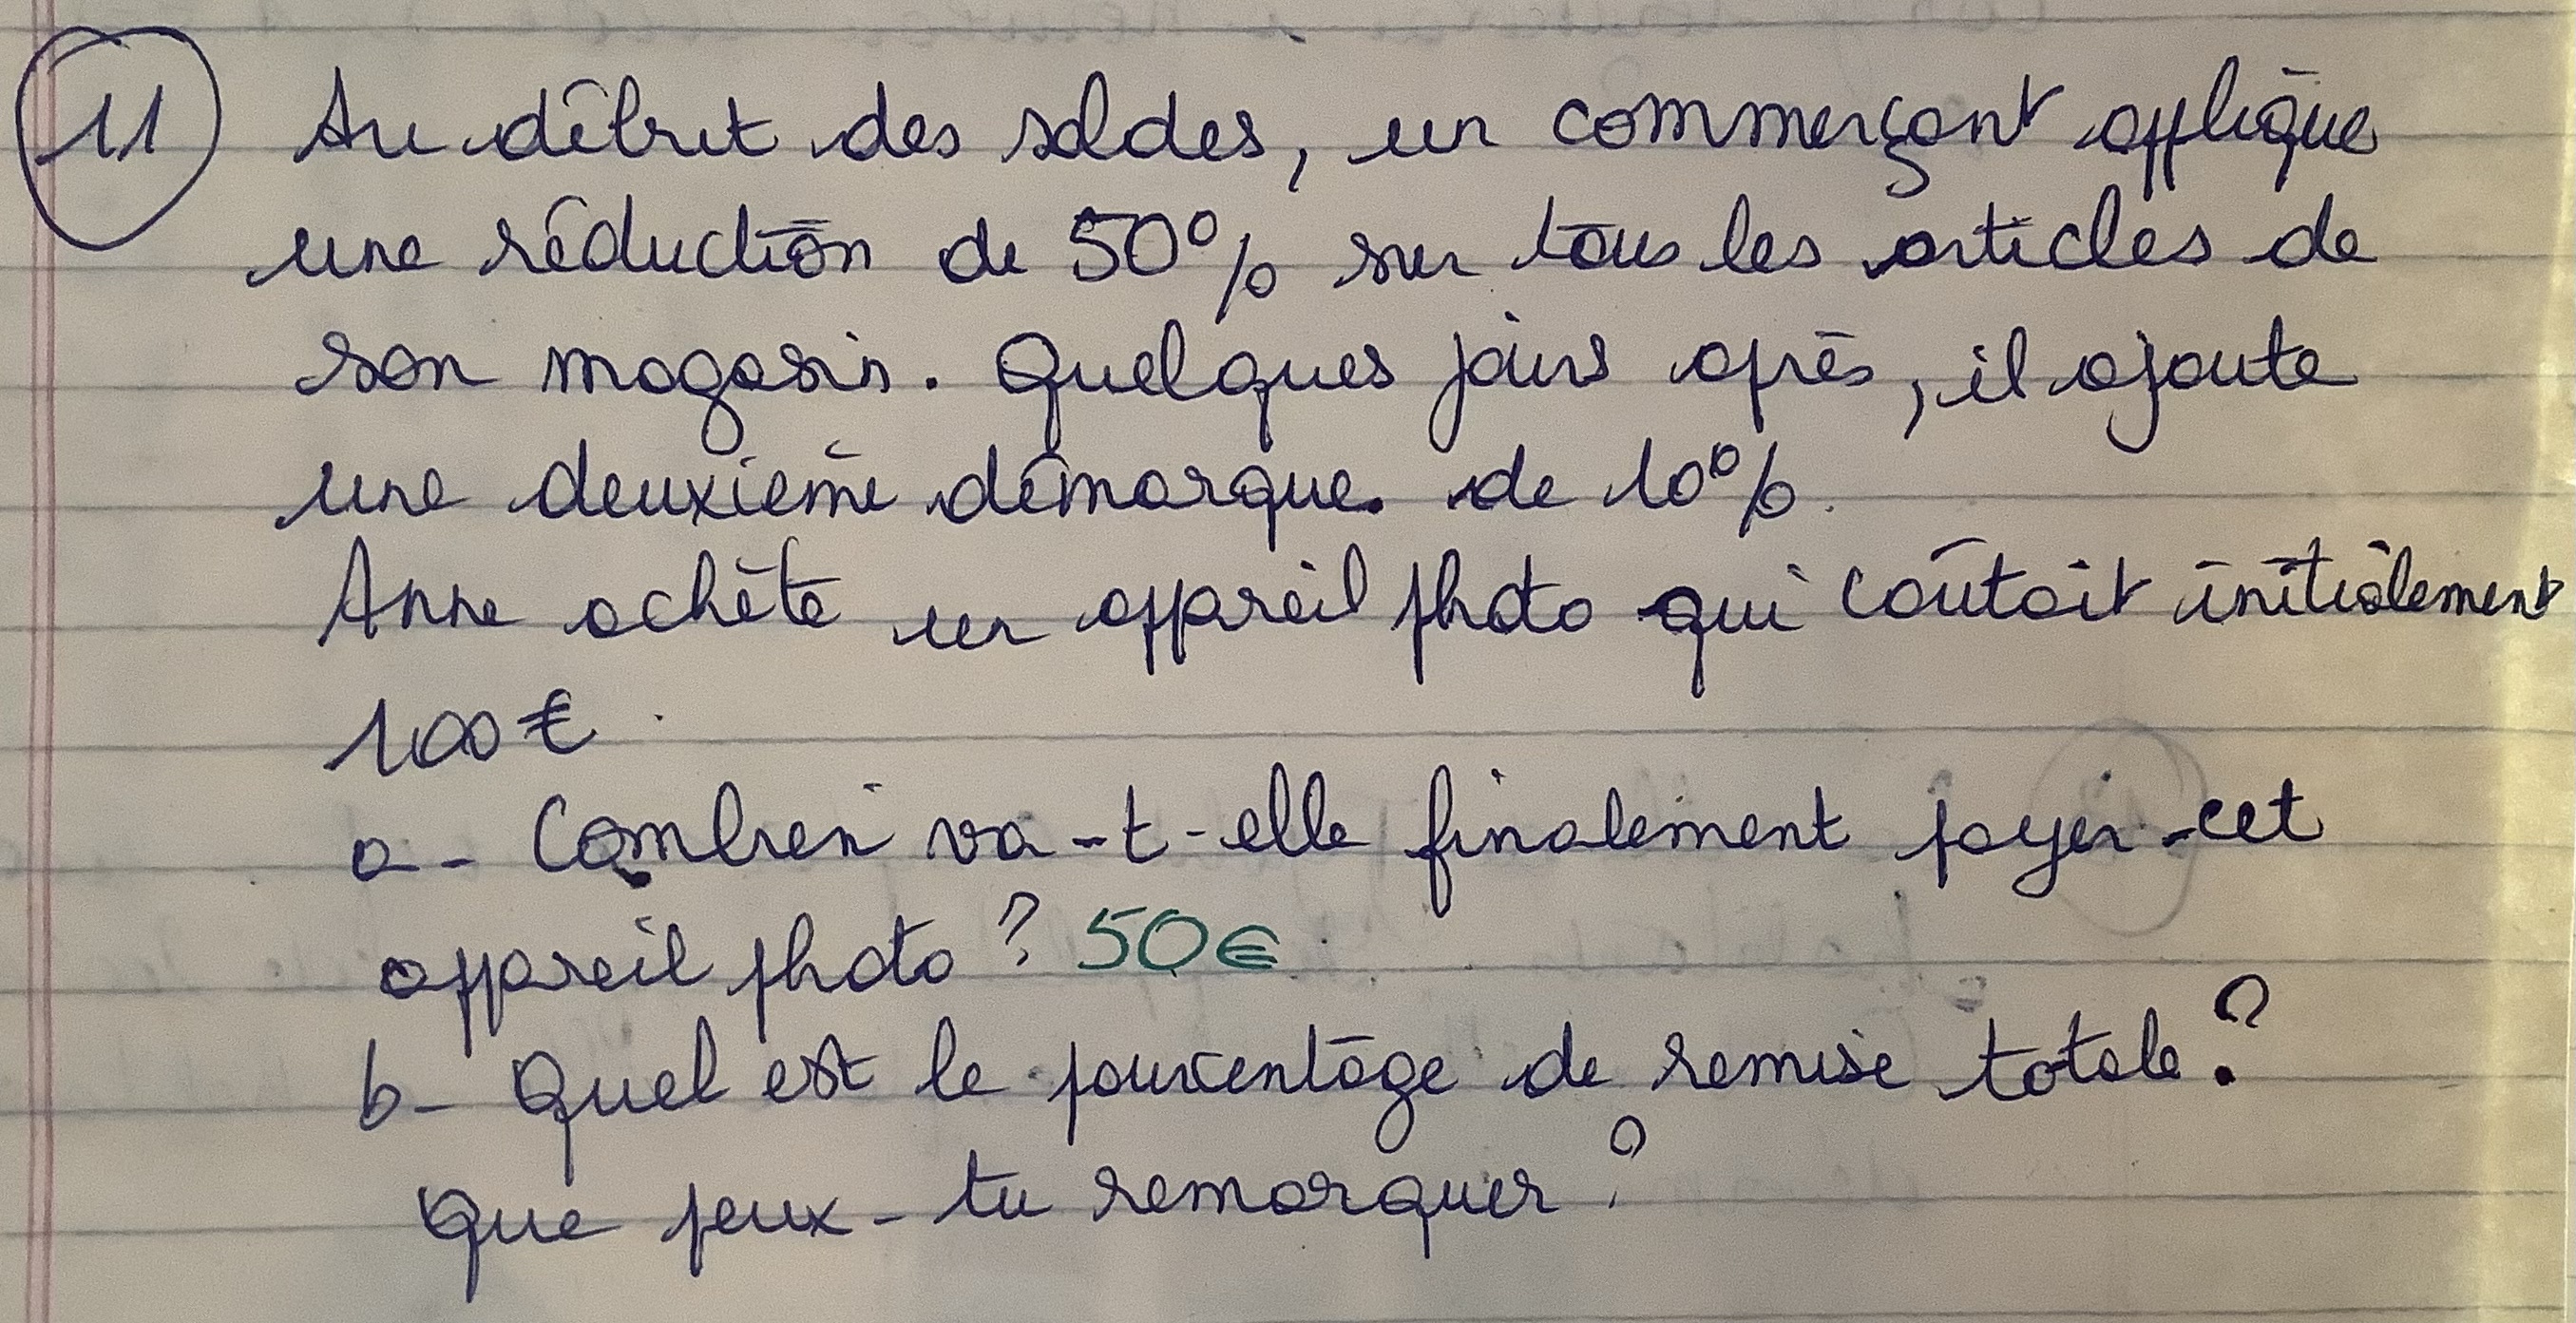 11 Au début des soldes, un commerçant applique
une réduction de 50% sur tous les articles de
son magasin. Quelques jours après, il ajoute
une deuxième démarque. de 10%.
Anne achète un appareil photo qui coûtait initialement
100€.
a- Combien va-t-elle finalement payer cet
appareil photo ? 50€
b- Quel est le pourcentage de remise totale ?
Que peux-tu remarquer ?